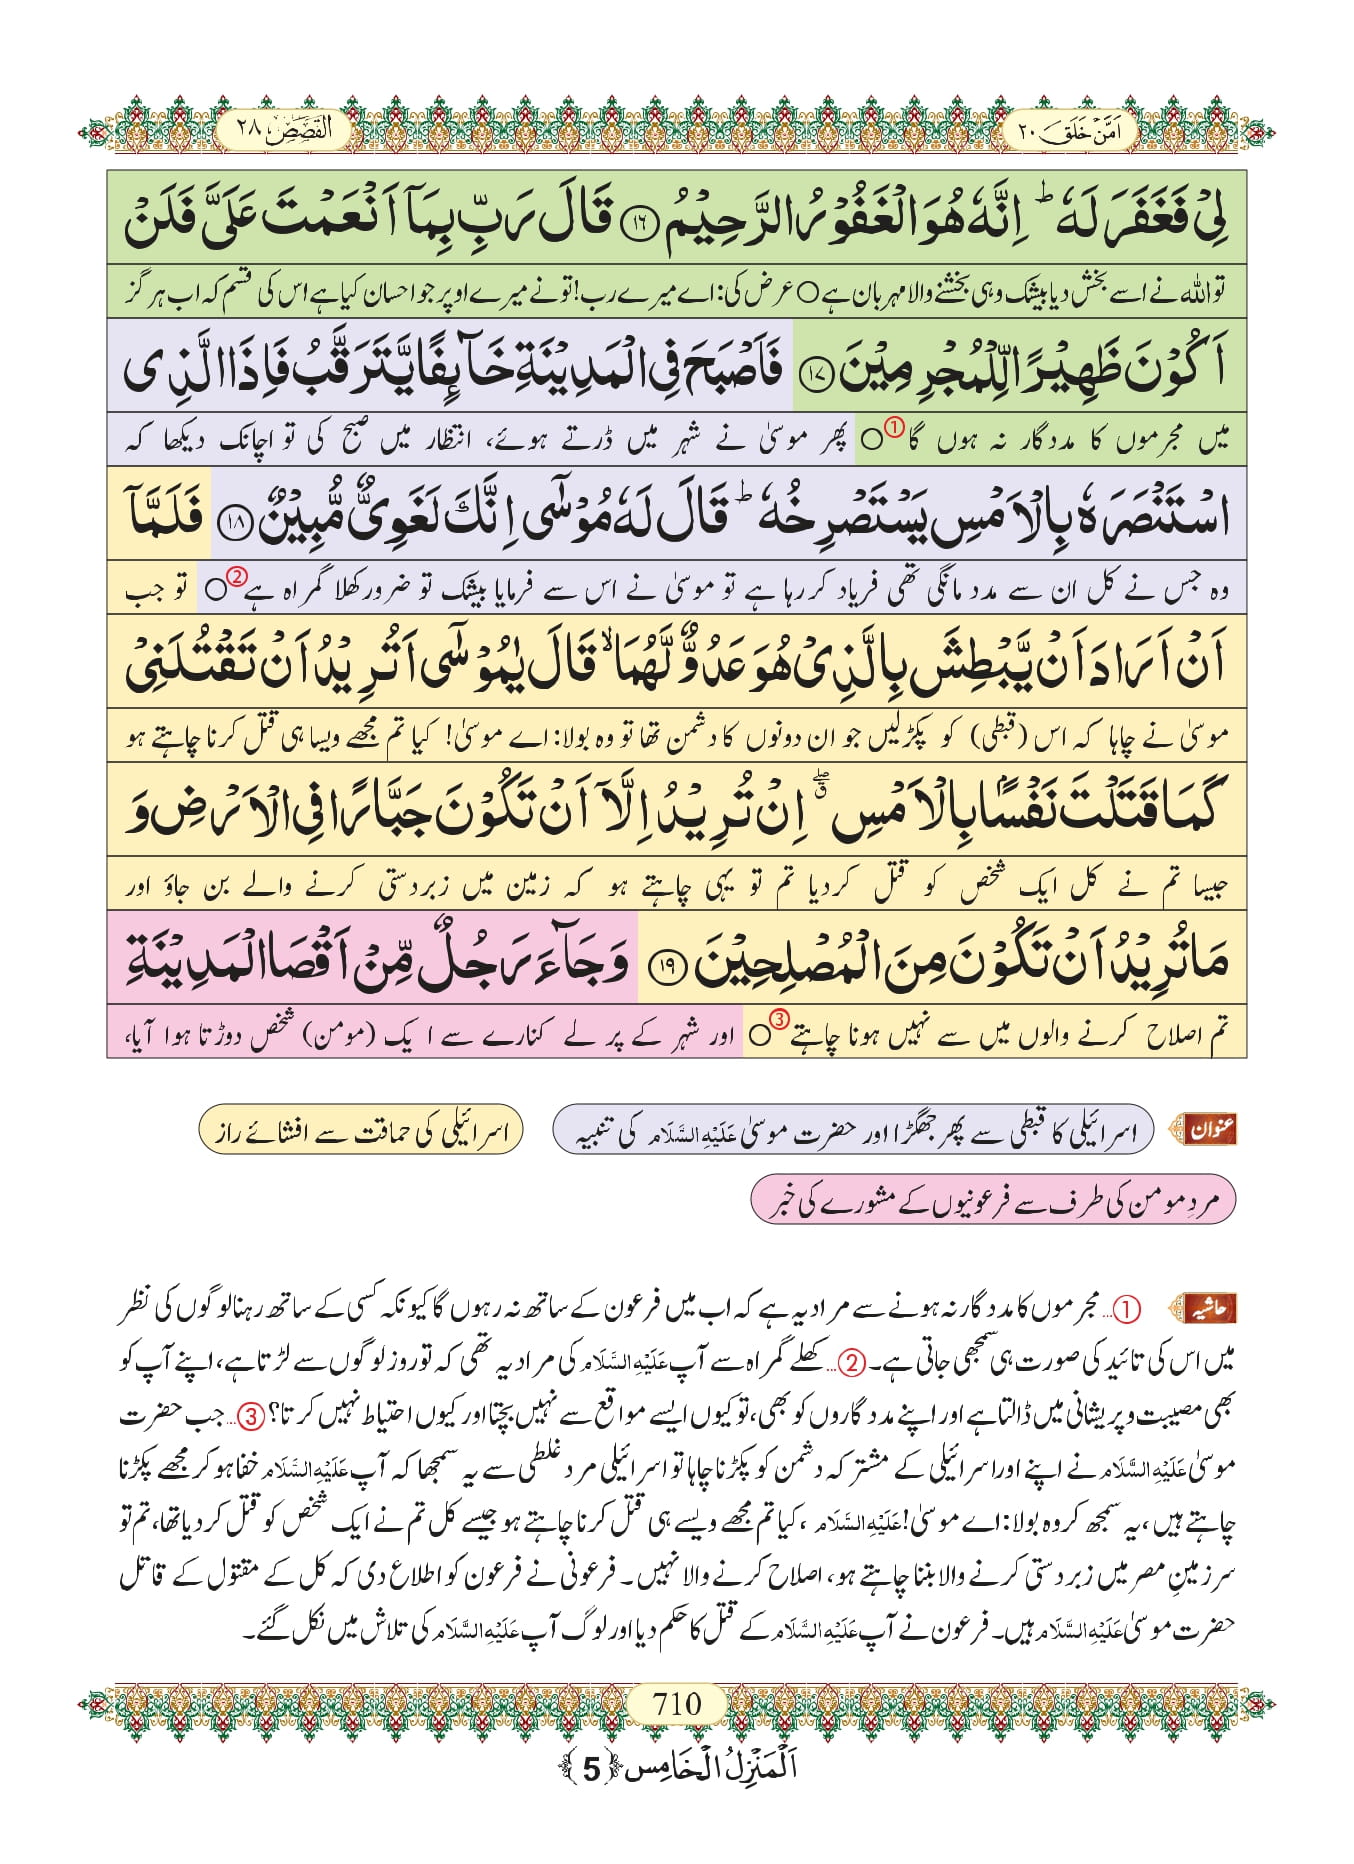 اَمَّنْ خَلَقَ ٢٠
القصص ٢٨
لِیْ فَغَفَرَ لَهٗ ؕ اِنَّهٗ هُوَ الْغَفُوْرُ الرَّحِیْمُ ﴿۱۶﴾ قَالَ رَبِّ بِمَاۤ اَنْعَمْتَ عَلَیَّ فَلَنْ
تو اللہ نے اسے بخش دیا بیشک وہی بخشنے والا مہربان ہے ○ عرض کی: اے میرے رب! تونے میرے اوپر جو احسان کیا ہے اس کی قسم کہ اب ہرگز
اَكُوْنَ ظَهِیْرًا لِّلْمُجْرِمِیْنَ ﴿۱۷﴾ فَاَصْبَحَ فِی الْمَدِیْنَةِ خَآىِٕفًا یَّتَرَقَّبُ فَاِذَا الَّذِی
میں مجرموں کا مددگار نہ ہوں گا ① ○ پھر موسیٰ نے شہر میں ڈرتے ہوئے، انتظار میں صبح کی تو اچانک دیکھا کہ
اسْتَنْصَرَهٗ بِالْاَمْسِ یَسْتَصْرِخُهٗ ؕ قَالَ لَهٗ مُوْسٰۤى اِنَّكَ لَغَوِیٌّ مُّبِیْنٌ ﴿۱۸﴾ فَلَمَّاۤ
وہ جس نے کل ان سے مدد مانگی تھی فریاد کر رہا ہے تو موسیٰ نے اس سے فرمایا بیشک تو ضرور کھلا گمراہ ہے ② ○ تو جب
اَنْ اَرَادَ اَنْ یَّبْطِشَ بِالَّذِیْ هُوَ عَدُوٌّ لَّهُمَا ۙ قَالَ یٰمُوْسٰۤى اَتُرِیْدُ اَنْ تَقْتُلَنِیْ
موسیٰ نے چاہا کہ اس (قبطی) کو پکڑلیں جو ان دونوں کا دشمن تھا تو وہ بولا: اے موسیٰ! کیا تم مجھے ویسا ہی قتل کرنا چاہتے ہو
كَمَا قَتَلْتَ نَفْسًۢا بِالْاَمْسِ ۖۗ اِنْ تُرِیْدُ اِلَّاۤ اَنْ تَكُوْنَ جَبَّارًا فِی الْاَرْضِ وَ
جیسا تم نے کل ایک شخص کو قتل کردیا تم تو یہی چاہتے ہو کہ زمین میں زبردستی کرنے والے بن جاؤ اور
مَا تُرِیْدُ اَنْ تَكُوْنَ مِنَ الْمُصْلِحِیْنَ ﴿۱۹﴾ وَ جَآءَ رَجُلٌ مِّنْ اَقْصَا الْمَدِیْنَةِ
تم اصلاح کرنے والوں میں سے نہیں ہونا چاہتے ③ ○ اور شہر کے پرلے کنارے سے ایک (مومن) شخص دوڑتا ہوا آیا،
عنوان اسرائیلی کا قبطی سے پھر جھگڑا اور حضرت موسیٰ عَلَیْهِ السَّلَام کی تنبیہ اسرائیلی کی حماقت سے افشائے راز
مردِ مومن کی طرف سے فرعونیوں کے مشورے کی خبر
حاشیہ ①... مجرموں کا مددگار نہ ہونے سے مراد یہ ہے کہ اب میں فرعون کے ساتھ نہ رہوں گا کیونکہ کسی کے ساتھ رہنا لوگوں کی نظر
میں اس کی تائید کی صورت ہی سمجھی جاتی ہے۔ ②... کھلے گمراہ سے آپ عَلَیْهِ السَّلَام کی مراد یہ تھی کہ تو روز لوگوں سے لڑتا ہے، اپنے آپ کو
بھی مصیبت و پریشانی میں ڈالتا ہے اور اپنے مددگاروں کو بھی، تو کیوں ایسے مواقع سے نہیں بچتا اور کیوں احتیاط نہیں کرتا؟ ③... جب حضرت
موسیٰ عَلَیْهِ السَّلَام نے اپنے اور اسرائیلی کے مشترکہ دشمن کو پکڑنا چاہا تو اسرائیلی مرد غلطی سے یہ سمجھا کہ آپ عَلَیْهِ السَّلَام خفا ہو کر مجھے پکڑنا
چاہتے ہیں، یہ سمجھ کر وہ بولا: اے موسیٰ! عَلَیْهِ السَّلَام، کیا تم مجھے ویسے ہی قتل کرنا چاہتے ہو جیسے کل تم نے ایک شخص کو قتل کر دیا تھا، تم تو
سرزمینِ مصر میں زبردستی کرنے والا بننا چاہتے ہو، اصلاح کرنے والا نہیں۔ فرعونی نے فرعون کو اطلاع دی کہ کل کے مقتول کے قاتل
حضرت موسیٰ عَلَیْهِ السَّلَام ہیں۔ فرعون نے آپ عَلَیْهِ السَّلَام کے قتل کا حکم دیا اور لوگ آپ عَلَیْهِ السَّلَام کی تلاش میں نکل گئے۔
710
اَلْمَنْزِلُ الْخَامِس ﴿5﴾